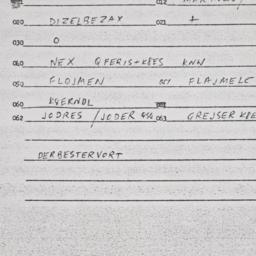 020 DIZELBEZAX 021 +
030 O
040 NEX QFERIS+KBES KNN
050 FLOJMEN 051 FLAJMELE
060 KGERNDL
062 JODRES / JODER 063 GREJSER
DERBESTERVORT